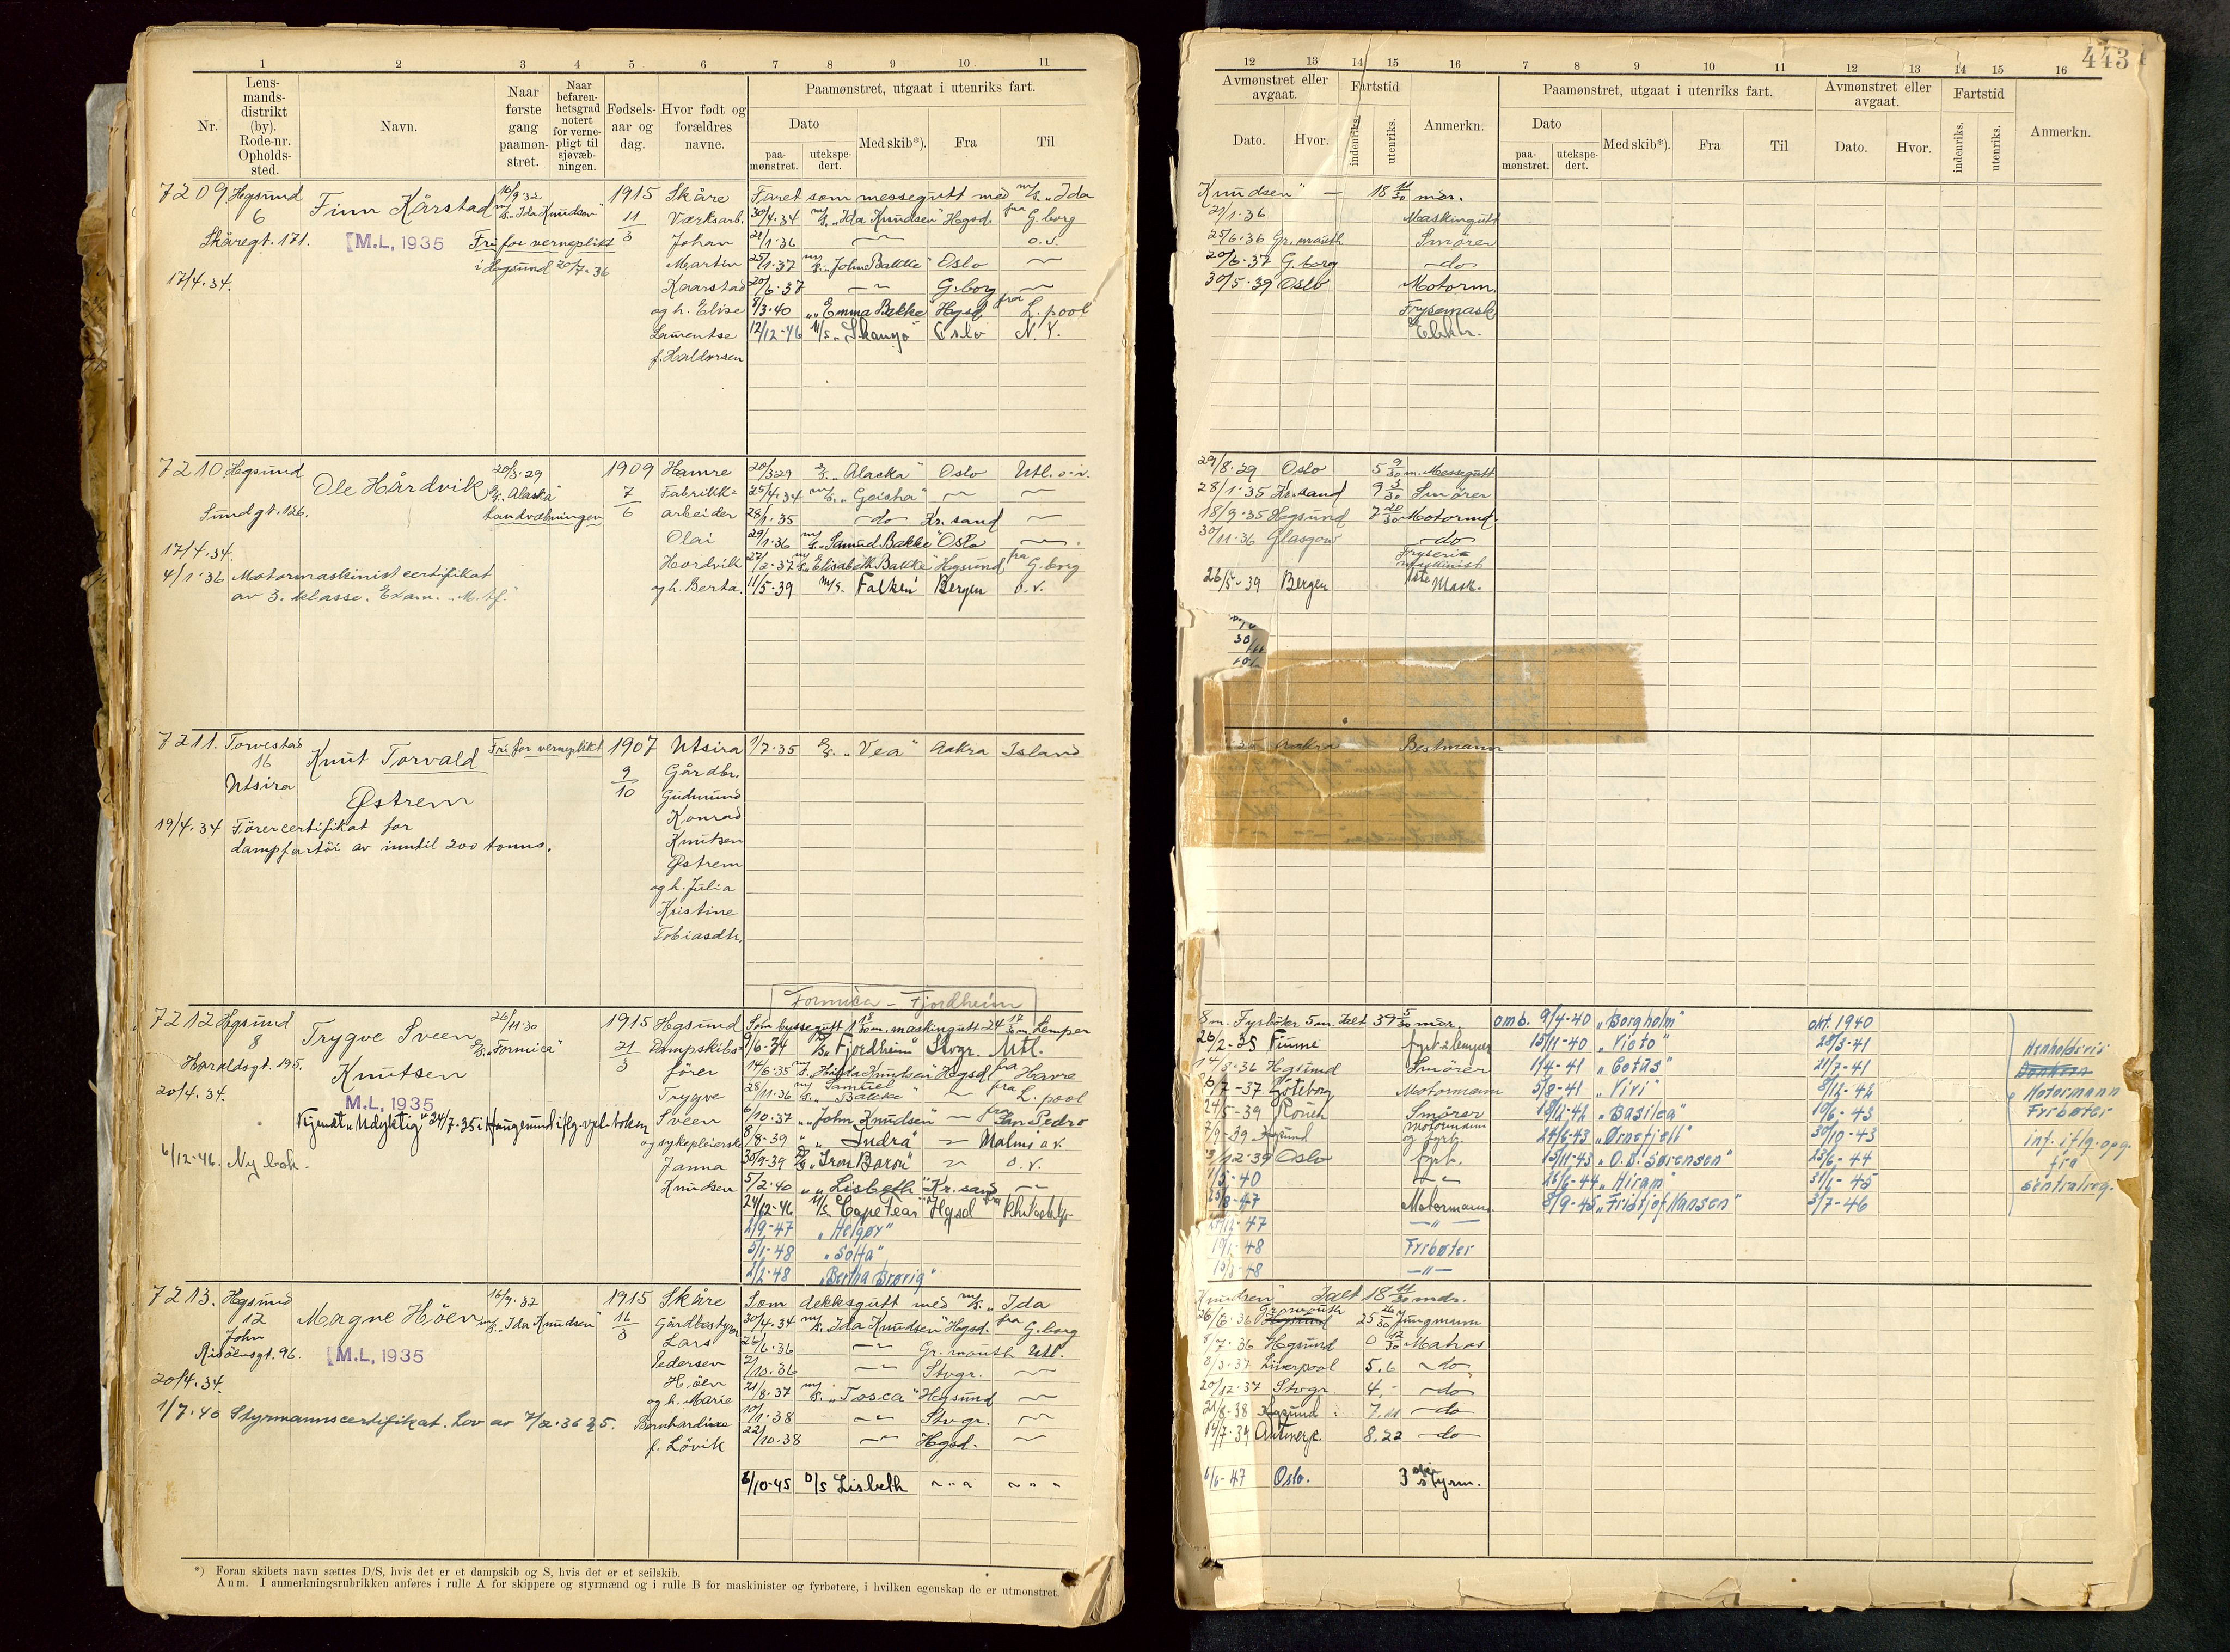 443
1 2 3 4 5 6 7 8 9 10 11
Nr.
Lens-
mands-
distrikt
(by).
Rode-nr.
Opholds-
sted.
Navn.
Naar
første
gang
paamøn-
stret.
Naar
befaren-
hetsgrad
notert
for verne-
pligt til
sjøvæb-
ningen.
Fødsels-
aar og
dag.
Hvor født og
forældres
navne.
Paamønstret, utgaat i utenriks fart.
Dato
paa-
mønstret.
utekspe-
dert.
Med skib*).
Fra
Til
7209 Hgsund 6 Finn Kårstad 16/9.32 1915 Skåre Faret som messegutt med m/s. „Ida
m/s. „Ida Knudsen" 11/3 Værksarb. 30/4.34 m/s. „Ida Knudsen" Hgsd. fra G.borg
Skåregt. 171. [M.L, 1935 Fri for verneplikt Johan 21/1.36 o.v.
i Hgsund 20/7.36 Martin 25/1.37 m/s. „John Bakke" Oslo
17/4.34. Kaarstad 20/6.37 G.borg
og h. Elise 8/3.40 „„ Emma Bakke" Hgsd. fra L.pool
Laurentse 12/12-46 M/S. „Skauge" Oslo N.Y.
f. Haldorsen
7210. Hgsund Ole Hårdvik 20/3.29 1909 Hamre 20/3.29 s/s. „Alaska" Oslo Utl. o.v.
s/s. „Alaska" 7/6 Fabrikk- 25/4.34 m/s. „Geisha"
Sundgt. 126. Landværningen arbeider 28/1.35 do Kr.sand
Olai 29/1.36 m/s. „Samuel Bakke" Oslo
17/4.34. Hordvik 27/2.37 m/s. „Elisabeth Bakke" Hgsund fra G.borg
4/1.36 Motormaskinistcertifikat og h. Berta. 11/5-39 m/s. Falken" Bergen o.v.
av 3. klasse. Exam. „M.tf."
7211. Torvestad 16 Knut Torvald Fri for verneplikt 1907 Utsira 1/7.35 s/s. „Vea" Aakra Island
Utsira Østrem 9/10 Gårdbr.
Gudmund
Konrad
19/4.34 Förercertifikat for Knutsen
dampfartöi av inntil 200 tonns. Østrem
og h. Julia
Kristine
Tobiasdtr.
Formica - Fjordheim
7212 Hgsund 8 Trygve Sveen 26/11.30 1915 Hgsund Som byssegutt 1 18/30 m. maskingutt 24 17/30 m. Lemper
s/s. „Formica" 21/3 Dampskibs- 9/6-34 „Fjordheim" Stvgr. Utl.
Haraldsgt. 195. Knutsen förer 14/6.35 „Hilda Knudsen" Hgsd. fra Havre
20/4.34. M.L, 1935 Trygve 28/11.36 m/s. „Samuel Bakke" fra L.pool
Kjendt „Udyktig" 24/7-35 i Haugesund Sveen 6/10.37 „„ John Knudsen" fra San Pedro
og sykepleierske 8/8-39 „ „ Indra" Malmö o.v.
6/12-46. Ny bok. Janna 30/9-39 „Iron Baron" o.v.
Knudsen 5/2.40 „ „ Lisbeth" Kr.sand
24/12-46 M/S. „Cape Fear" Hgsd fra Philadelp.
2/9-47 „Helgør"
5/1-48 „Solta"
2/2-48 „Bertha Brøvig"
7213. Hgsund 12 Magne Höen 16/9.32 1915 Skåre Som dekksgutt med m/s. „Ida
John m/s. „Ida Knudsen" 16/3 Gårdbestyrer 30/4.34 m/s. „Ida Knudsen" Hgsd. fra G.borg
Risöensgt. 96. [M.L, 1935 Lars 26/6.36 Gr.mouth Utl.
Pedersen 2/10.36 Stvgr.
20/4.34. Höen 21/8.37 m/s. „Tosca" Hgsund
1/7.40 Styrmannscertifikat. Lov av 7/2.36 § 5. og h. Marie 10/1.38 Stvgr.
Bernhardine 22/10-38 Hgsd.
f. Lövik
6/10-45 D/S Lisbeth
*) Foran skibets navn sættes D/S, hvis det er et dampskib og S, hvis det er et seilskib.
Anm. I anmerkningsrubrikken anføres i rulle A for skippere og styrmænd og i rulle B for maskinister og fyrbøtere, i hvilken egenskap de er utmønstret.
12 13 14 15 16 7 8 9 10 11 12 13 14 15 16
Avmønstret eller
avgaat.
Fartstid
Dato.
Hvor.
indenriks.
utenriks.
Anmerkn.
Paamønstret, utgaat i utenriks fart.
Dato
paa-
mønstret.
utekspe-
dert.
Med skib*).
Fra
Til
Avmønstret eller
avgaat.
Fartstid
Dato.
Hvor.
indenriks.
utenriks.
Anmerkn.
Knudsen" — 18 11/30 mdr.
21/1.36 Maskingutt
25/6.36 Gr.mouth Smörer
20/6.37 G.borg do
30/5.39 Oslo Motorm.
Frysemask
Elektr.
29/8.29 Oslo 5 9/30 m. Messegutt
28/1.35 Kr.sand 9 3/30 Smörer
18/9.35 Hgsund 7 20/30 Motormd.
30/11.36 Glasgow do
Fryseri-
maskinist
26/5-39 Bergen 1ste Mask.
Aakra Bestmann
8 m. Fyrböter 5 m. Ialt 39 5/30 mdr. omb. 9/4-40 „Borgholm" okt. 1940
26/2-35 Fiume fyrb. & lemper 15/11-40 „Victo" 28/3-41 Henholdsvis
14/8.36 Hgsund Smörer 1/4-41 „Cetus" 21/7-41 Donkern
7-37 Göteborg Motormann 5/8-41 „Vivi" 8/12-42 Motormann
24/5-39 Rouen Smörer 18/12-42 „Basilea" 10/6-43 Fyrbøter
/9-39 Hgsund Motormann og fyrb. 24/6-43 „Ørnefjell" 30/10-43 inf. iflg. opg.
/12-39 Oslo fyrb. 15/11-43 „O. B. Sørensen" 25/6-44 fra
/5-40 28/6-44 „Hiram" 31/1-45 sentralreg.
/8-47 Motormann 8/9-45 „Fridtjof Nansen" 3/7-46
/12-47 — „ —
19/1-48 Fyrbøter
15/3-48 — „ —
Knudsen" Ialt 18 11/30 mdr.
26/6.36 Gr.mouth 25 26/30 Jungmann
8/7.36 Hgsund 0 12/30 Matros
8/3.37 Liverpool 5.6 do
20/12.37 Stvgr. 4.- do
21/8-38 Hgsund do
14/7.39 Antwerp. 8.22 do
6/6-47 Oslo. 3die Styrm.